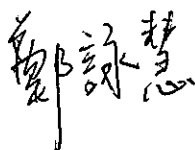 鄭詠慧